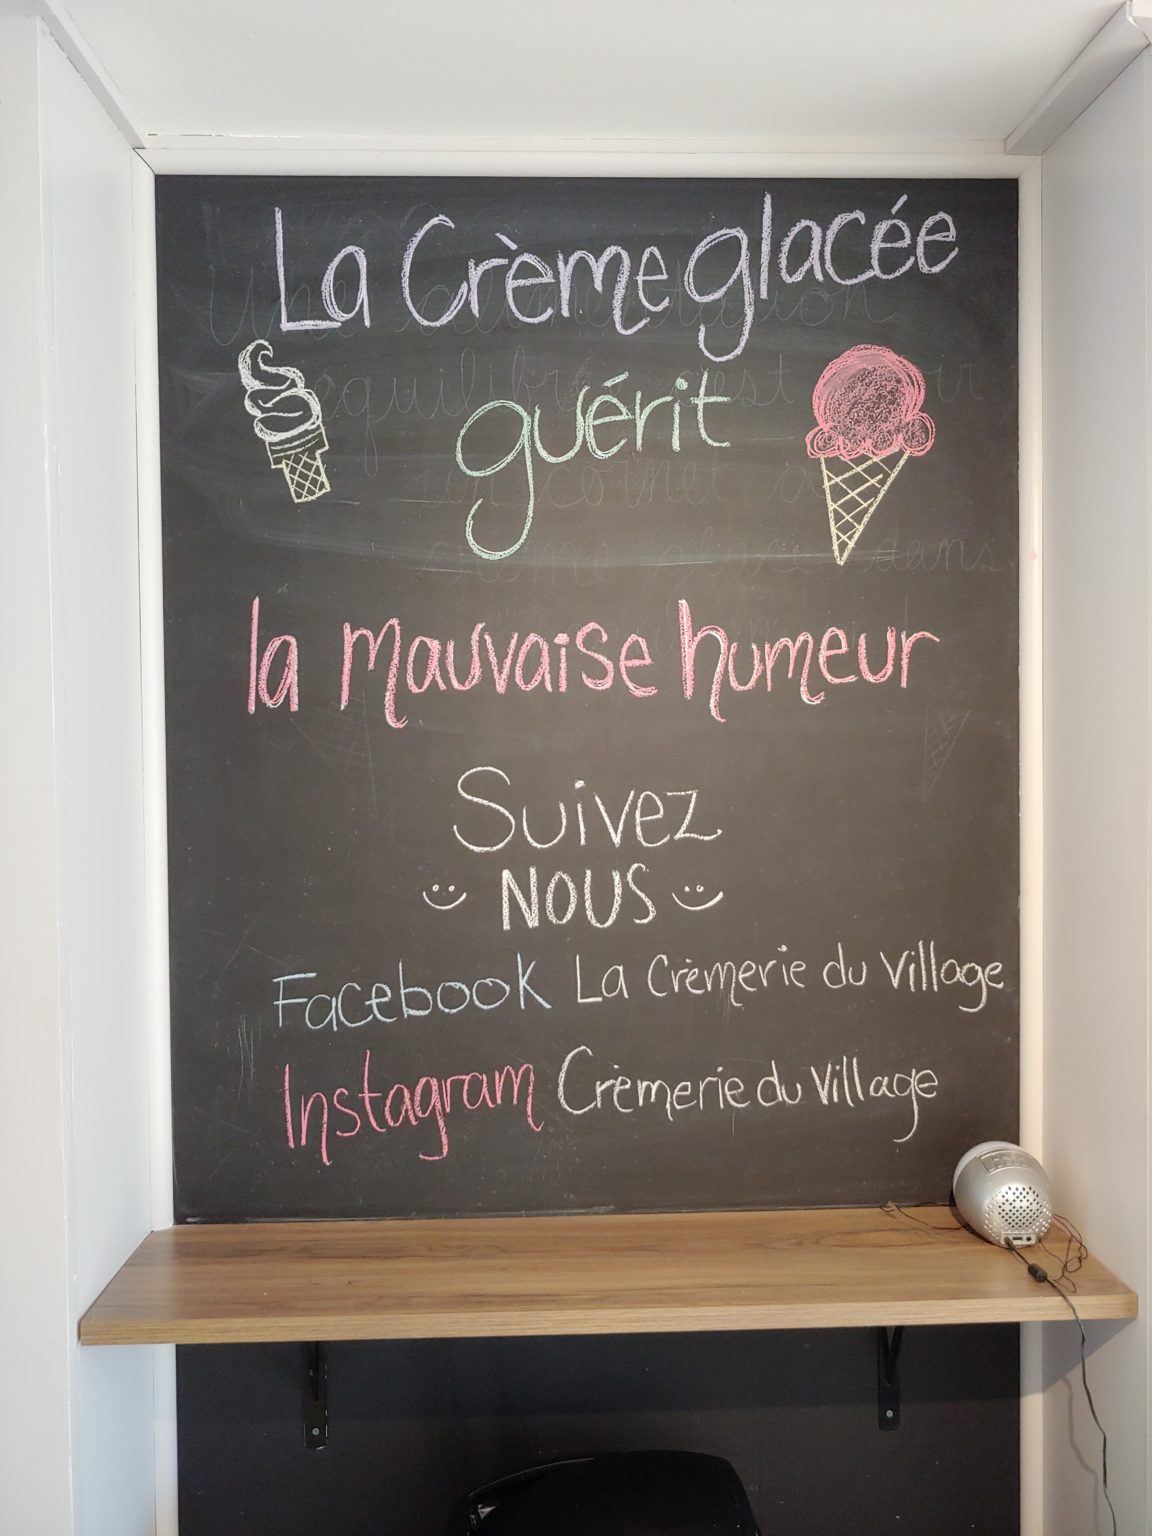 La Crème glacée
guérit
la mauvaise humeur
Suivez
NOUS
Facebook La Crèmerie du Village
Instagram Crèmerie du Village